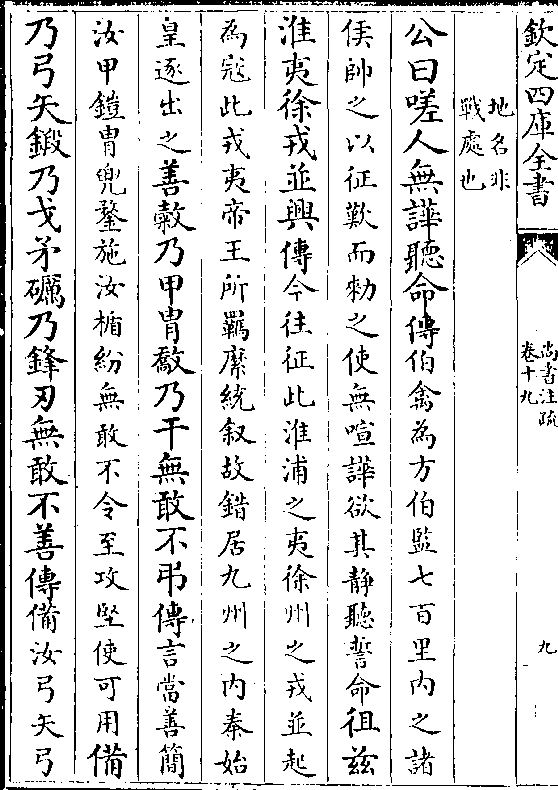 欽定四庫全書
尚書注疏
卷十九
九
地名非
戰處也
公曰嗟人無譁聽命傳伯禽為方伯監七百里内之諸
侯帥之以征歎而勑之使無喧譁欲其静聽誓命徂兹
淮夷徐戎並興傳今往征此淮浦之夷徐州之戎並起
為寇此戎夷帝王所羈縻統叙故錯居九州之内秦始
皇逐出之善敹乃甲胄敿乃干無敢不弔傳言當善簡
汝甲鎧胄兜鍪施汝楯紛無敢不令至攻堅使可用備
乃弓矢鍛乃戈矛礪乃鋒刃無敢不善傳備汝弓矢弓